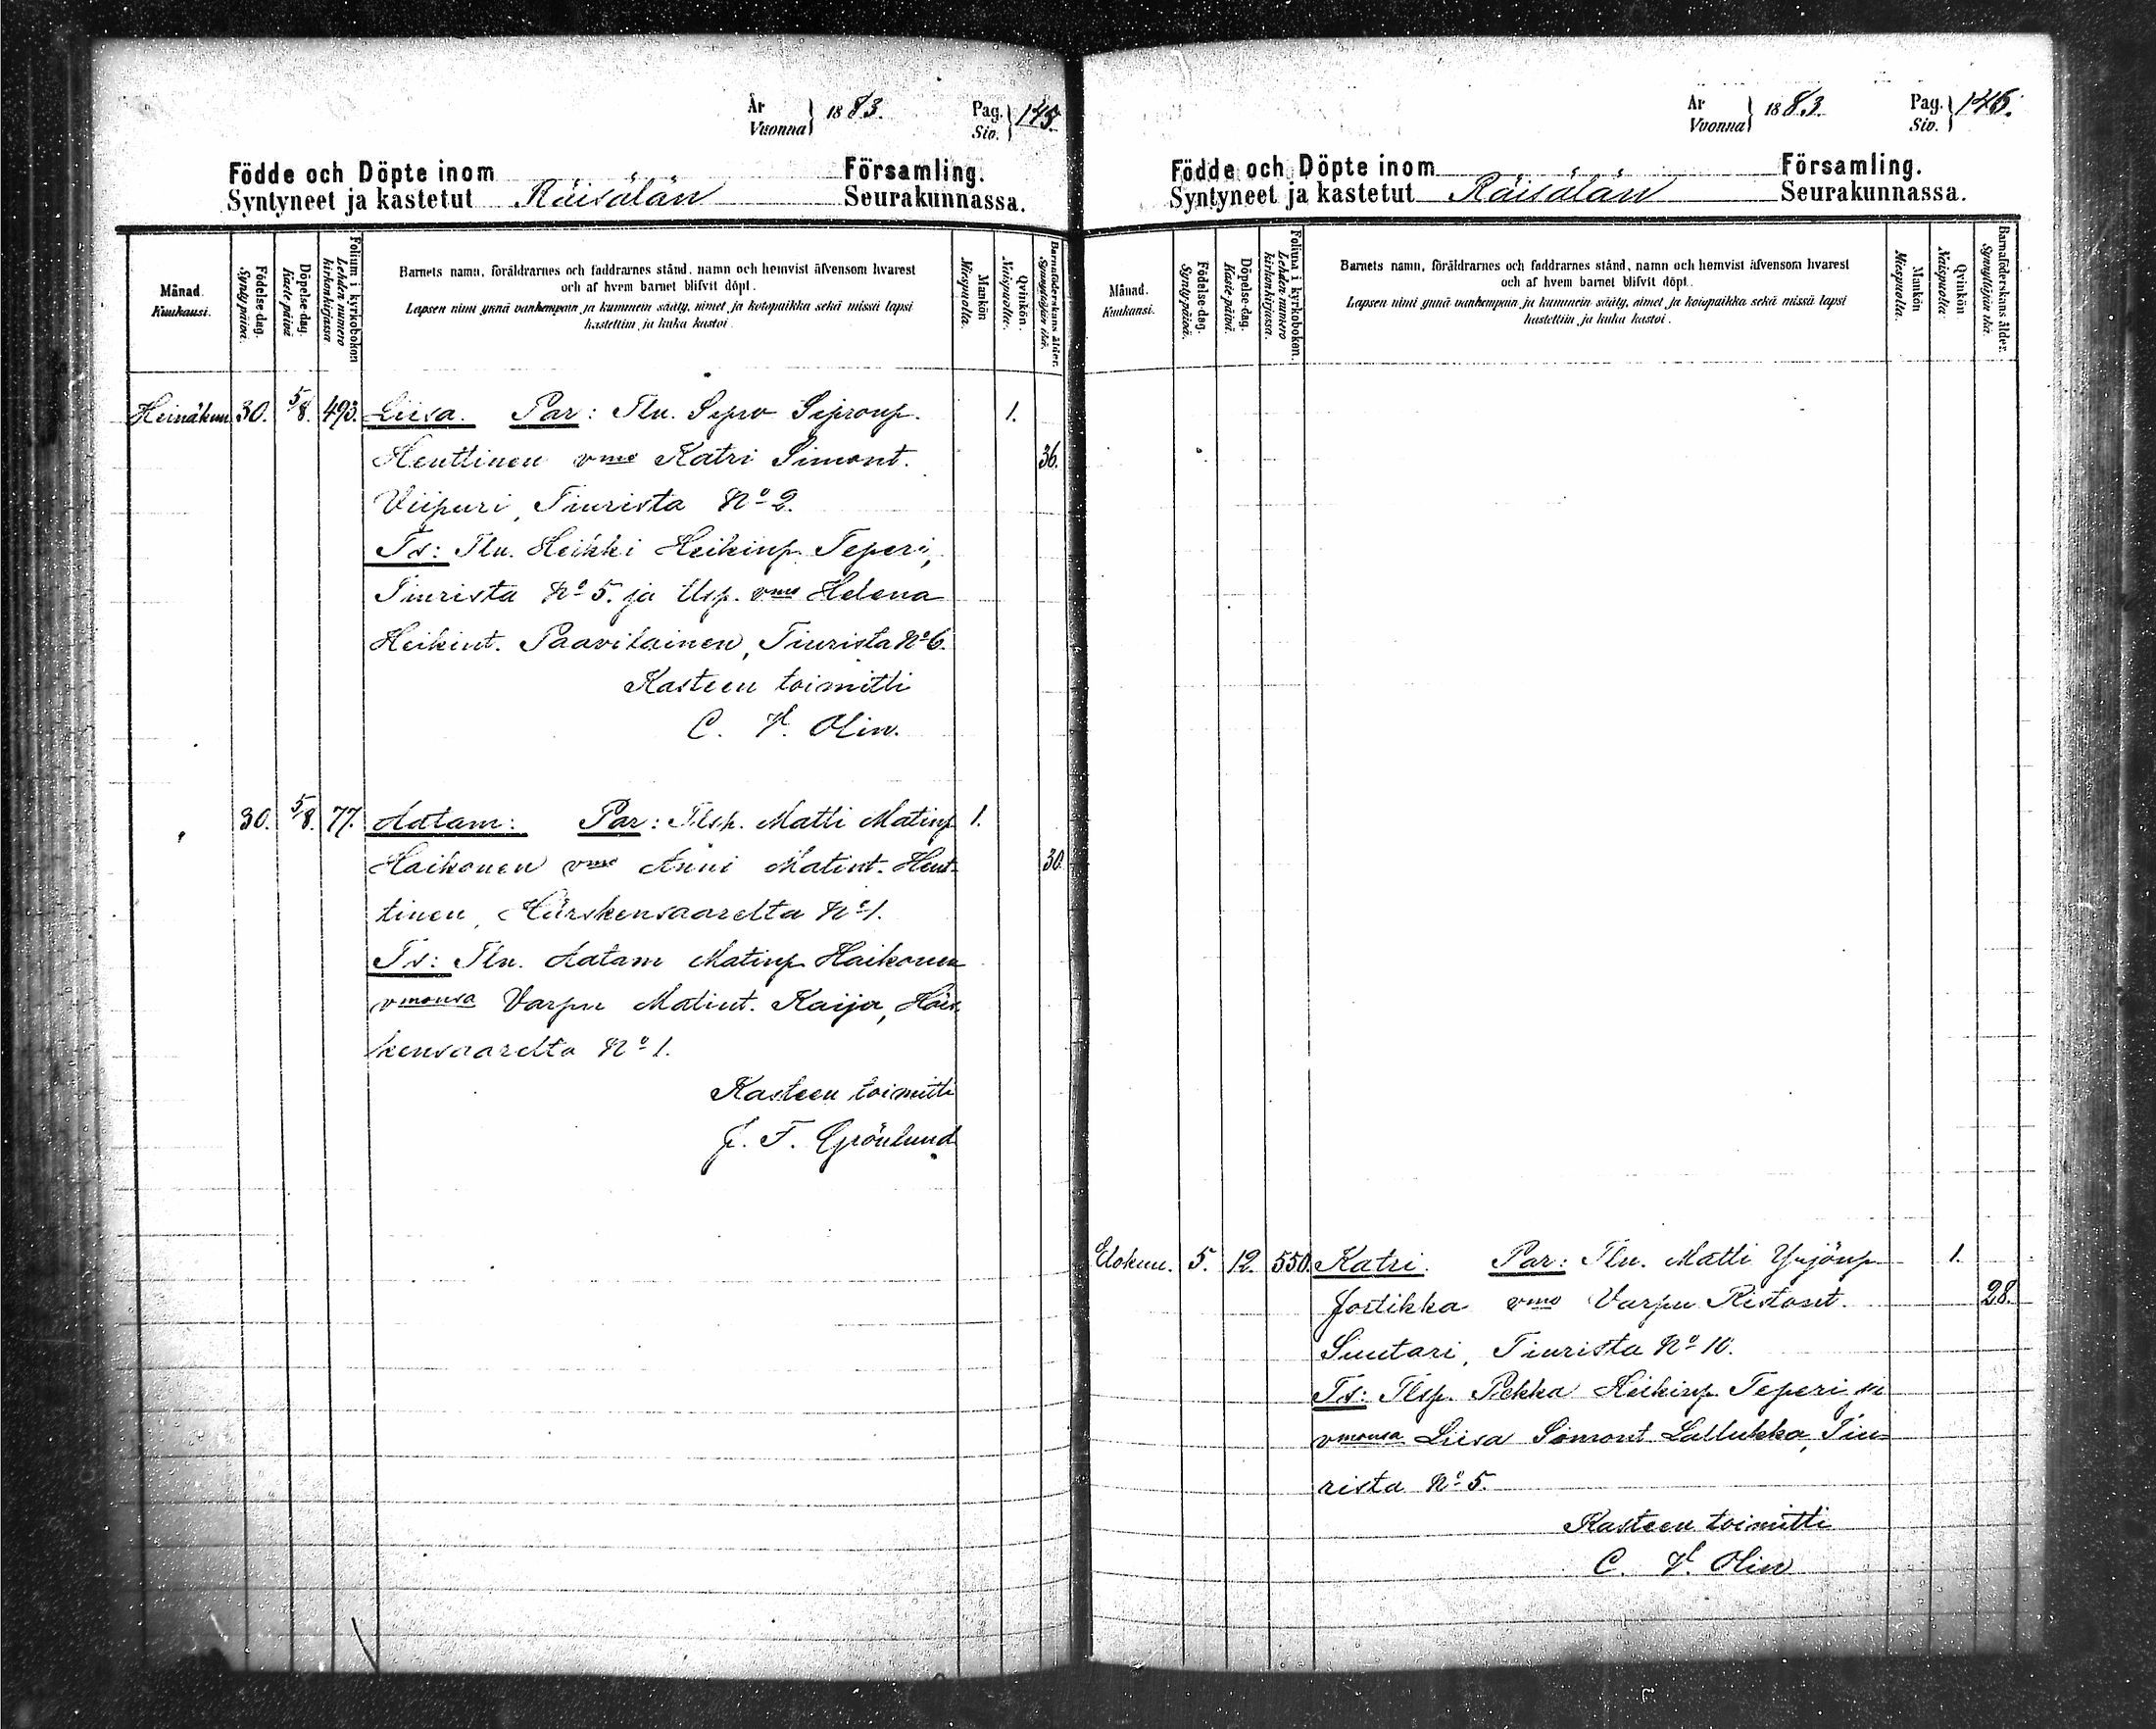 År
Vuonna } 1883. Pag.
Siv. } 145.
Födde och Döpte inom Församling.
Syntyneet ja kastetut Räisälän Seurakunnassa.
Månad.
Kuukausi.
Födelse-dag.
Synty-päivä.
Döpelse-dag.
Kaste-päivä
Folium i kyrkoboken
Lehden numero
kirkonkirjassa
Barnets namn, föräldrarnes och faddrarnes stånd, namn och hemvist äfvensom hvarest
och af hvem barnet blifvit döpt.
Lapsen nimi ynnä vanhempain ja kummein sääty, nimet ja kotopaikka sekä missä lapsi
kastettiin ja kuka kastoi.
Mankön
Miespuolta.
Qvinkön.
Naispuolta.
Barnaföderskans ålder.
Synnyttäjän ikä.
Heinäkuu 30. 5/8. 493. Liisa. Par: Tln. Sipro Sipronp. 1.
Henttinen vmo Katri Simont. 36.
Viipuri, Tiurista No 2.
Ts: Tln. Heikki Heikinp. Teperi,
Tiurista No 5. ja Usp. vmo Helena
Heikint. Paavilainen, Tiurista No 6.
Kasteen toimitti
C. V. Olin.
30. 5/8. 77. Aatam: Par: Tlsp. Matti Matinp 1.
Haikonen vmo Anni Matint. Hent- 30.
tinen, Härskensaarelta No 1.
Ts: Tln. Aatam Matinp Haikonen
vmonsa Varpu Matint. Kaija, Härs-
kensaarelta No 1.
Kasteen toimitti
J. F. Grönlund
År
Vuonna } 1883. Pag.
Siv. } 146.
Födde och Döpte inom Församling.
Syntyneet ja kastetut Räisälän Seurakunnassa.
Månad.
Kuukausi.
Födelse-dag.
Synty-päivä.
Döpelse-dag.
Kaste-päivä.
Folium i kyrkoboken.
Lehden numero
kirkonkirjassa.
Barnets namn, föräldrarnes och faddrarnes stånd, namn och hemvist äfvensom hvarest
och af hvem barnet blifvit döpt.
Lapsen nimi ynnä vanhempain ja kummein sääty, nimet ja kotopaikka sekä missä lapsi
kastettiin ja kuka kastoi.
Mankön
Miespuolta.
Qvinkön
Naispuolta
Barnaföderskans ålder.
Synnyttäjän ikä.
Elokuu. 5. 12. 550. Katri. Par: Tln. Matti Yrjönp 1.
Jortikka vmo Varpu Ristont. 28.
Suutari, Tiurista No 10.
Ts: Tlsp. Pekka Heikinp. Teperi ja
vmonsa Liisa Simont Lallukka, Tiu-
rista No 5.
Kasteen toimitti
C. V. Olin